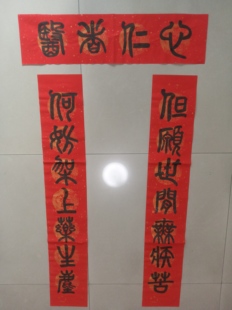 醫者仁心
但願世間無疾苦
何妨架上藥生塵